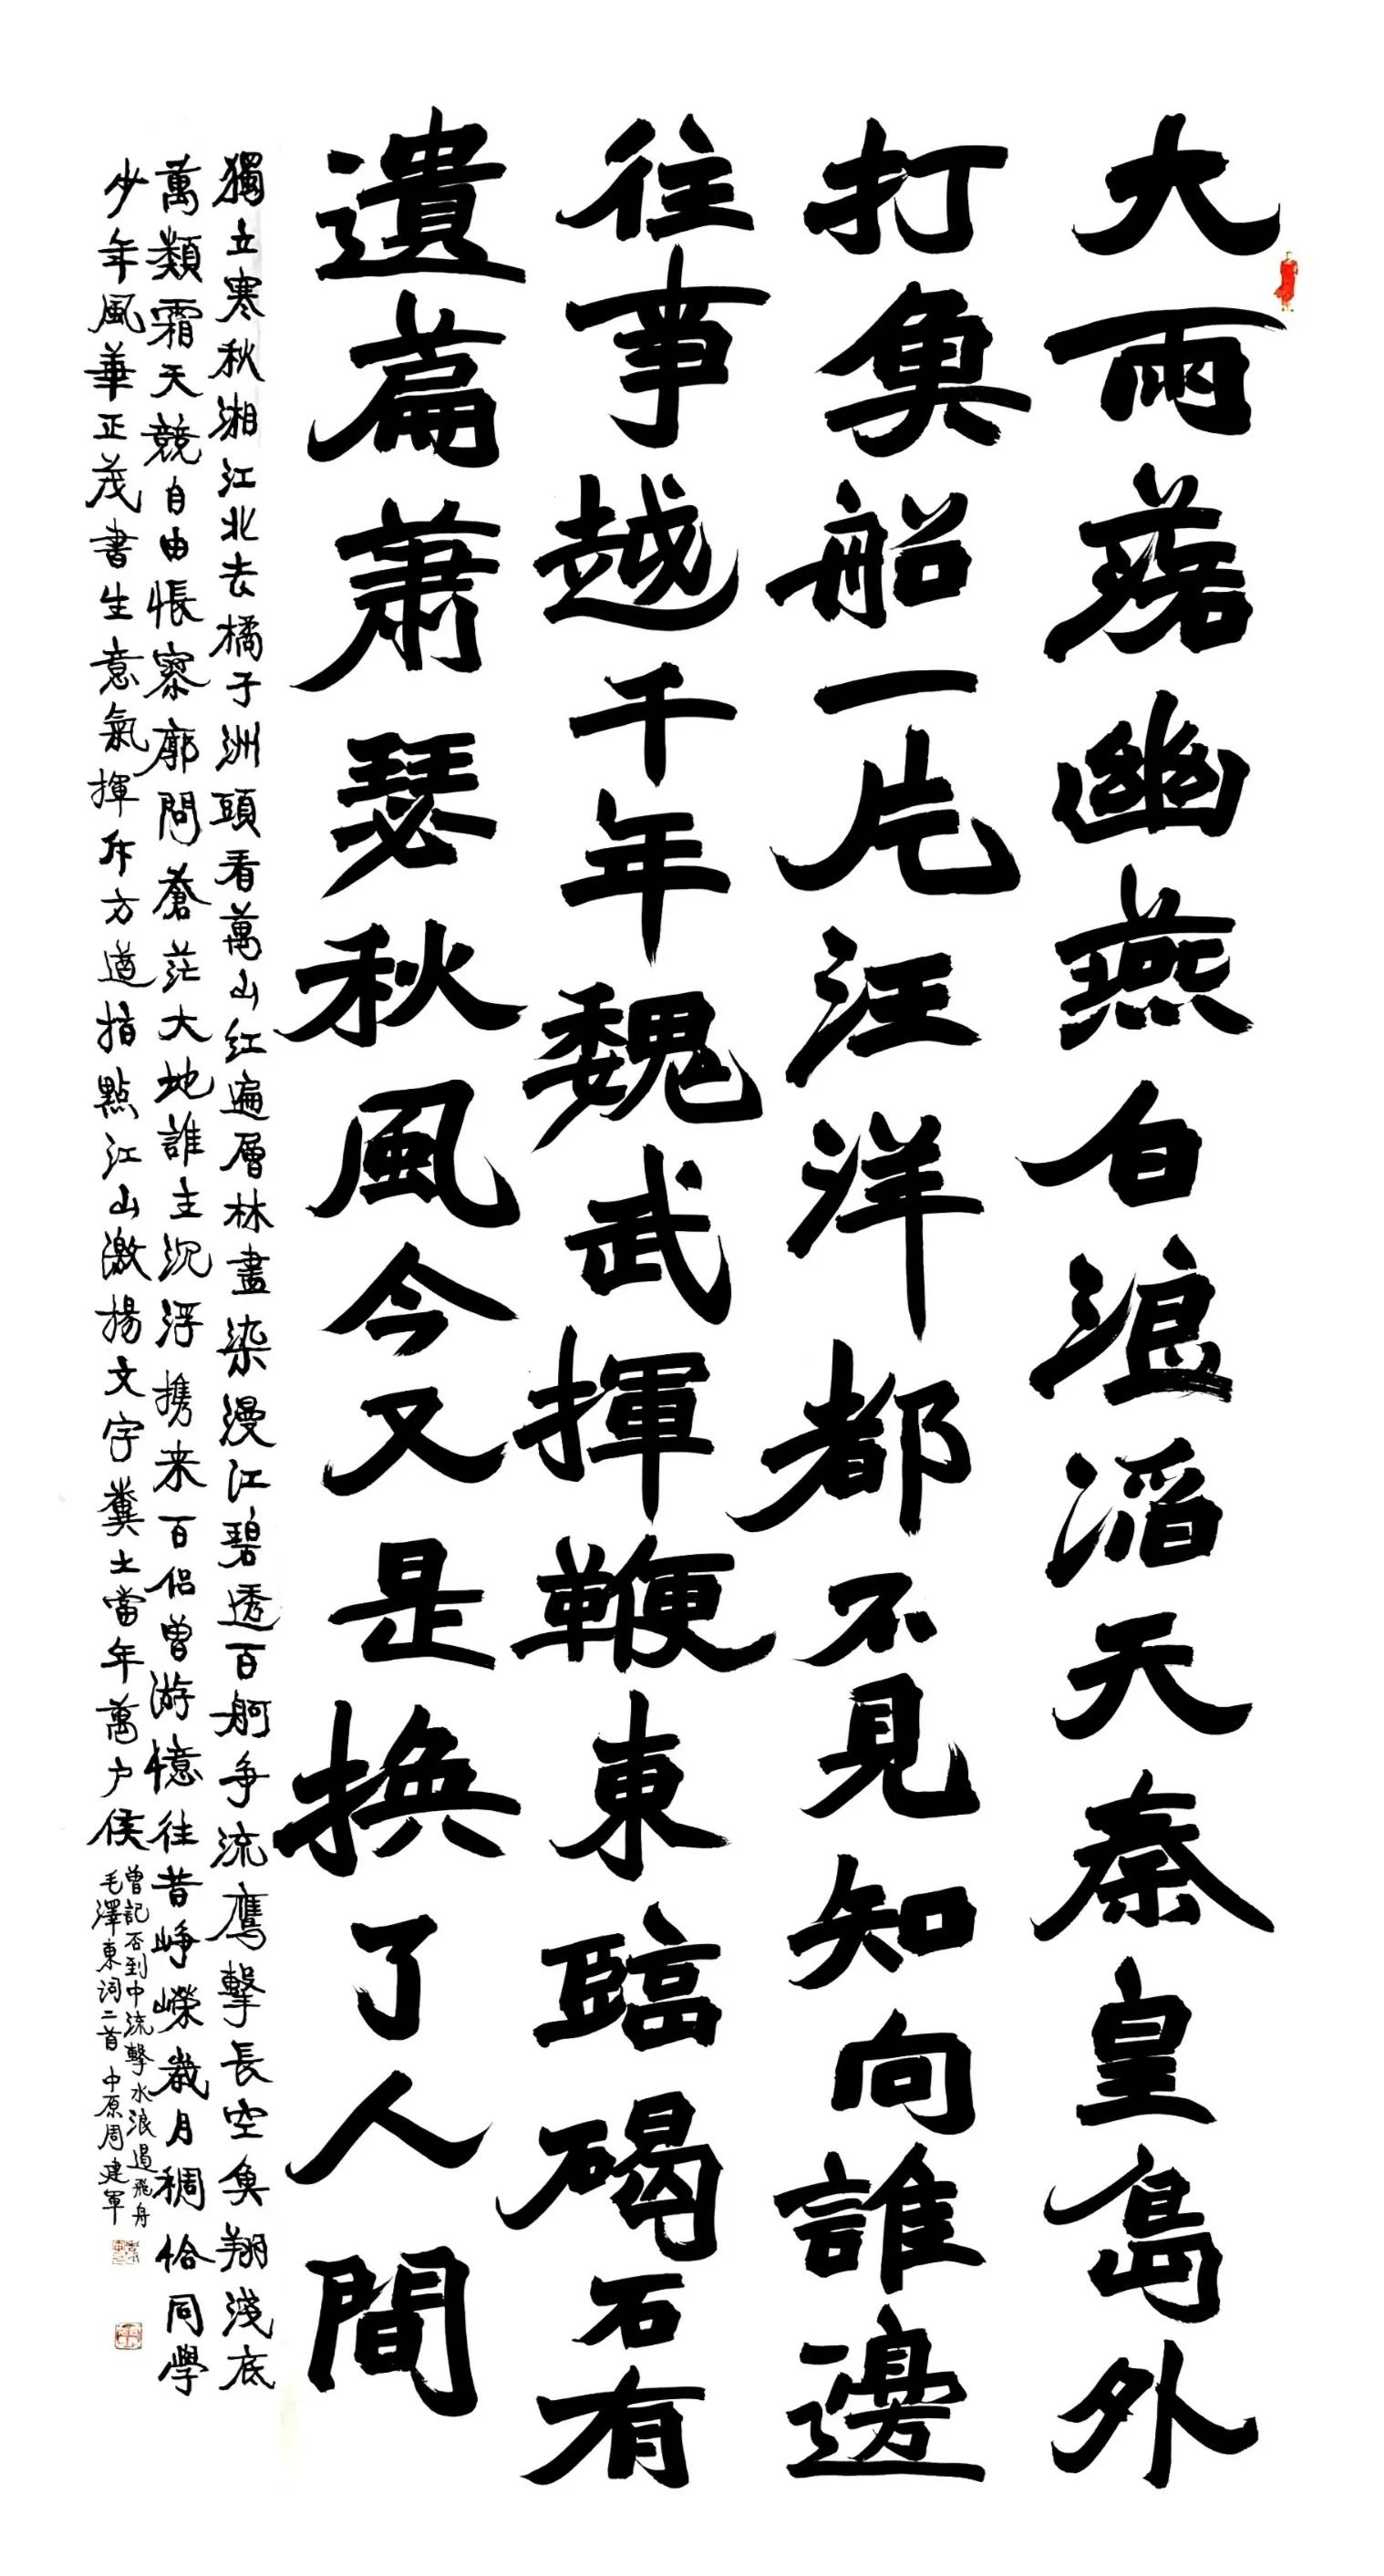 大雨落幽燕白浪滔天秦皇島外
打魚船一片汪洋都不見知向誰邊
往事越千年魏武揮鞭東臨碣石有
遺篇蕭瑟秋風今又是換了人間
獨立寒秋湘江北去橘子洲頭看萬山红遍層林盡染漫江碧透百舸争流鹰擊長空魚翔淺底
萬類霜天競自由悵寥廓問蒼茫大地誰主沉浮携来百侣曾游憶往昔崢嶸歲月稠恰同學
少年風華正茂書生意氣揮斥方遒指點江山激揚文字糞土當年萬户侯
曾記否到中流擊水浪遏飛舟
毛澤東詞二首 中原周建軍